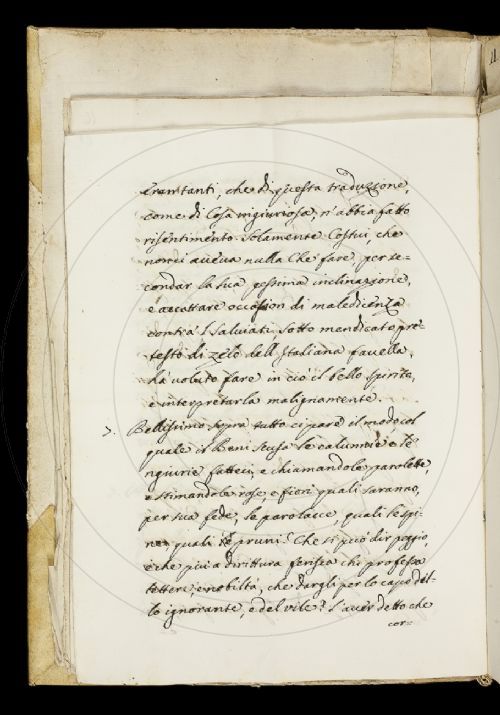 Eran tanti, che di questa traduzione,
come di Cosa ingiuriosa, n'abbia fatto
risentimento solamente Costui, che
non ci aveva nulla Che fare, per se-
condar la sua pessima inclinazione,
e accattare occasion di maledicenza
contra 'l Salviati. Sotto mendicato pre-
testo di zelo dell'Italiana favella,
ha voluto fare in ciò il bello spirito,
e interpretarla malignamente.
7. Bellissimo sopra tutto ci pare il modo col
quale il Beni scusa le calunnie e l'in-
giurie fatteci, e chiamandole parolette,
e stimandole rose, e fiori quali saranno,
per sua fede, le parolacce, quali le spi-
ne, quali i pruni? Che si può dir peggio,
e che più a dirittura ferisca chi professa
lettere, e nobiltà, che dargli per lo capo del-
lo ignorante, e del vile? L'aver detto che
cor=